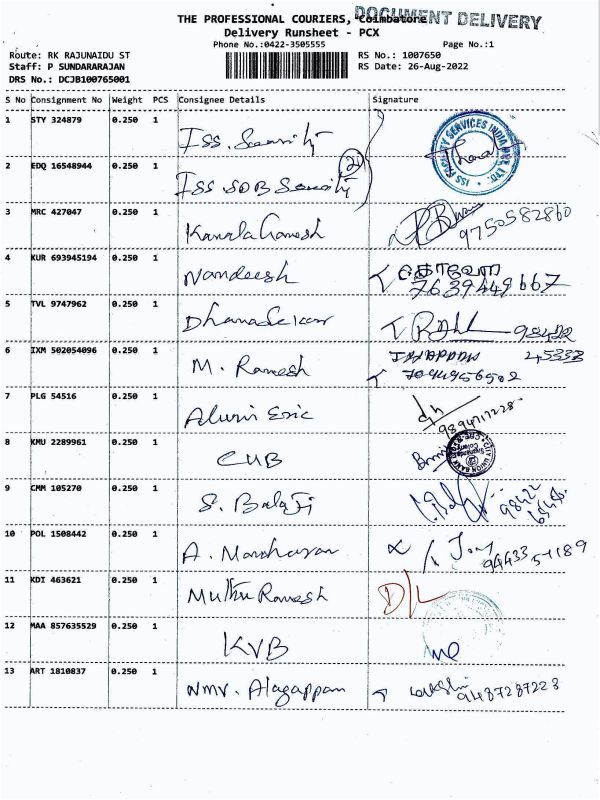 THE PROFESSIONAL COURIERS, Coimbatore
DOCUMENT DELIVERY
Delivery Runsheet - PCX
Phone No.:0422-3505555
Page No.:1
Route: RK RAJUNAIDU ST
RS No.: 1007650
Staff: P SUNDARARAJAN
RS Date: 26-Aug-2022
DRS No.: DCJB100765001
S No Consignment No Weight PCS Consignee Details Signature
1 STY 324879 0.250 1 ISS. Security
ISS FACILITY SERVICES INDIA PVT. LTD.
2 EDQ 16548944 0.250 1 ISS SDB Security
3 MRC 427047 0.250 1 Kamala Ganesh 9750582860
4 KUR 693945194 0.250 1 Nandeesh 7639449667
5 TVL 9747962 0.250 1 Dhanasekar 98422
45333
6 IXM 502054096 0.250 1 M. Ramesh
7 PLG 54516 0.250 1 Aluri Eric 9894717228
8 KMU 2289961 0.250 1 CUB
CITY UNION BANK
9 CMM 105270 0.250 1 S. Balaji 98422
10 POL 1508442 0.250 1 A. Manoharan 94433 51189
11 KDI 463621 0.250 1 Muthu Ramesh D/L
12 MAA 857635529 0.250 1 KVB
13 ART 1810837 0.250 1 NMV. Alagappan 9487287228